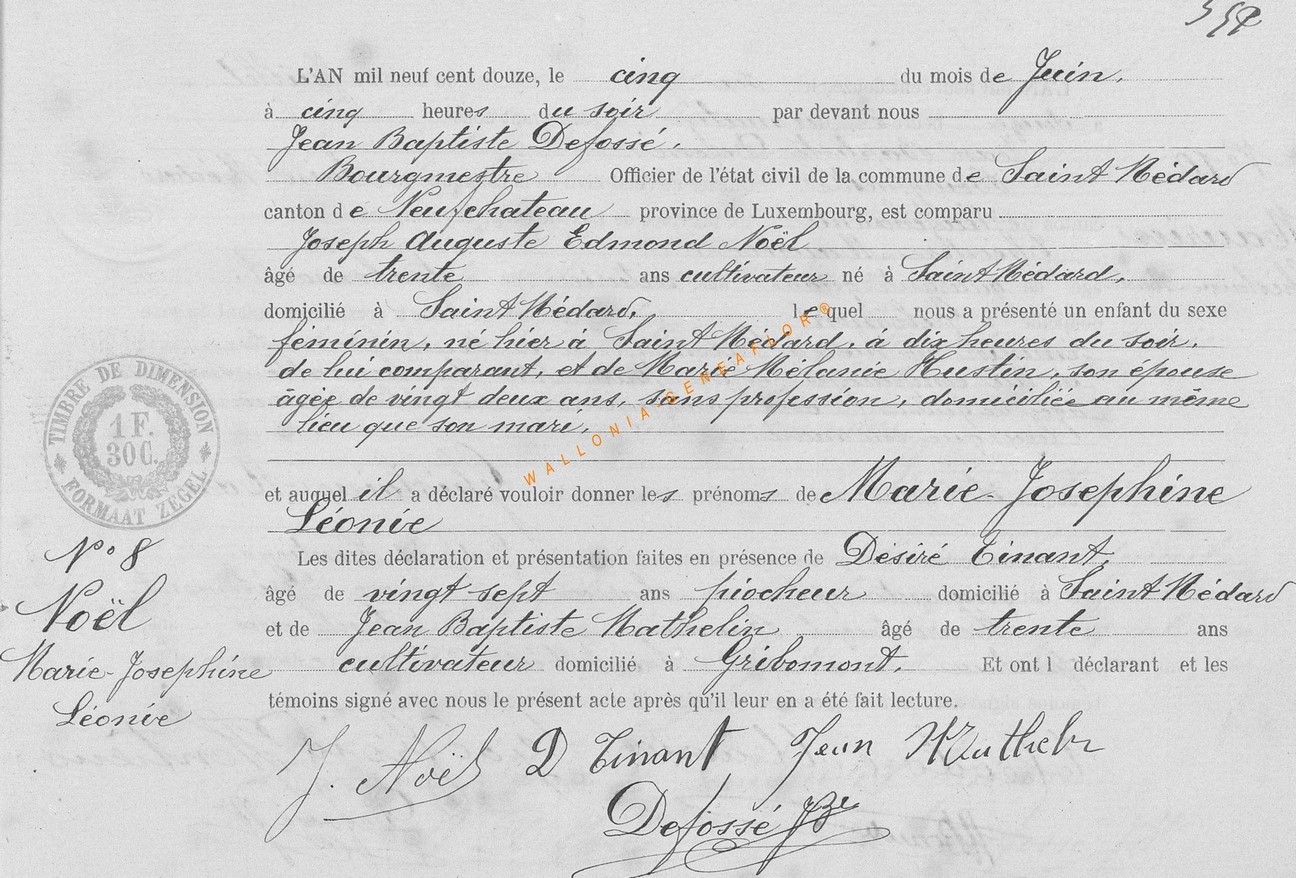 L'AN mil neuf cent douze, le cinq du mois de Juin.
à cinq heures du soir par devant nous
Jean Baptiste Defossé,
Bourgmestre Officier de l'état civil de la commune de Saint Médard
canton de Neufchateau province de Luxembourg, est comparu
Joseph Auguste Edmond Noël
âgé de trente ans cultivateur né à Saint Médard,
domicilié à Saint Médard, lequel nous a présenté un enfant du sexe
féminin, né hier à Saint Médard, à dix heures du soir,
de lui comparant, et de Marie Mélanie Hustin, son épouse
âgée de vingt deux ans, sans profession, domiciliée au même
lieu que son mari.
et auquel il a déclaré vouloir donner les prénoms de Marie-Josephine
Léonie
Les dites déclaration et présentation faites en présence de Désiré Tinant,
âgé de vingt sept ans piocheur domicilié à Saint Médard
et de Jean Baptiste Mathelin âgé de trente ans
cultivateur domicilié à Gribomont. Et ont l déclarant et les
témoins signé avec nous le présent acte après qu'il leur en a été fait lecture.
J. Noël D Tinant Jean Mathelin
Defossé JB
TIMBRE DE DIMENSION
1 F.
30 C.
FORMAAT ZEGEL
N° 8
Noël
Marie-Josephine
Léonie
WALLONIA.GENEAFLOR®